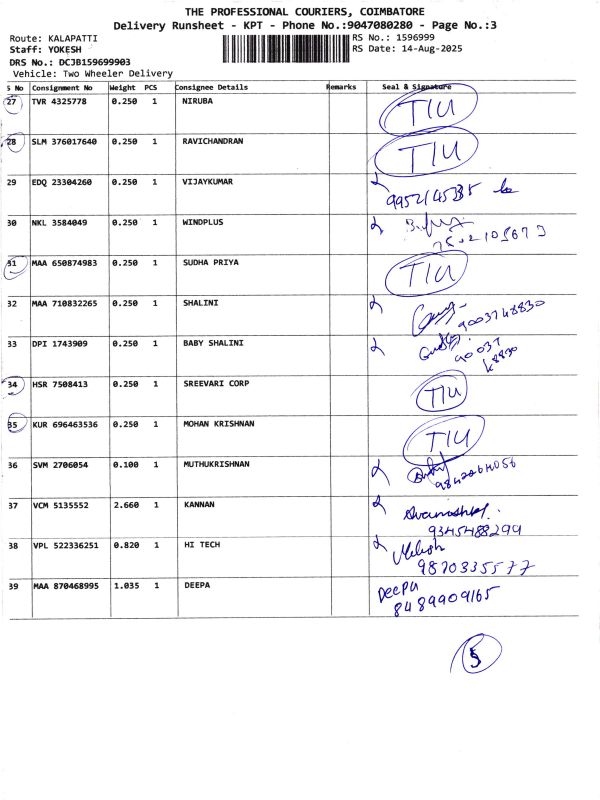 THE PROFESSIONAL COURIERS, COIMBATORE
Delivery Runsheet - KPT - Phone No.:9047080280 - Page No.:3
Route: KALAPATTI RS No.: 1596999
Staff: YOKESH RS Date: 14-Aug-2025
DRS No.: DCJB159699903
Vehicle: Two Wheeler Delivery
S No Consignment No Weight PCS Consignee Details Remarks Seal & Signature
27 TVR 4325778 0.250 1 NIRUBA TIU
28 SLM 376017640 0.250 1 RAVICHANDRAN TIU
29 EDQ 23304260 0.250 1 VIJAYKUMAR
30 NKL 3584049 0.250 1 WINDPLUS
31 MAA 650874983 0.250 1 SUDHA PRIYA TIU
32 MAA 710832265 0.250 1 SHALINI
9003748830
33 DPI 1743909 0.250 1 BABY SHALINI
90037
48830
34 HSR 7508413 0.250 1 SREEVARI CORP TIU
35 KUR 696463536 0.250 1 MOHAN KRISHNAN TIU
36 SVM 2706054 0.100 1 MUTHUKRISHNAN
9842064056
37 VCM 5135552 2.660 1 KANNAN
9345488299
38 VPL 522336251 0.820 1 HI TECH
9870335577
39 MAA 870468995 1.035 1 DEEPA Deepa
8489909165
5